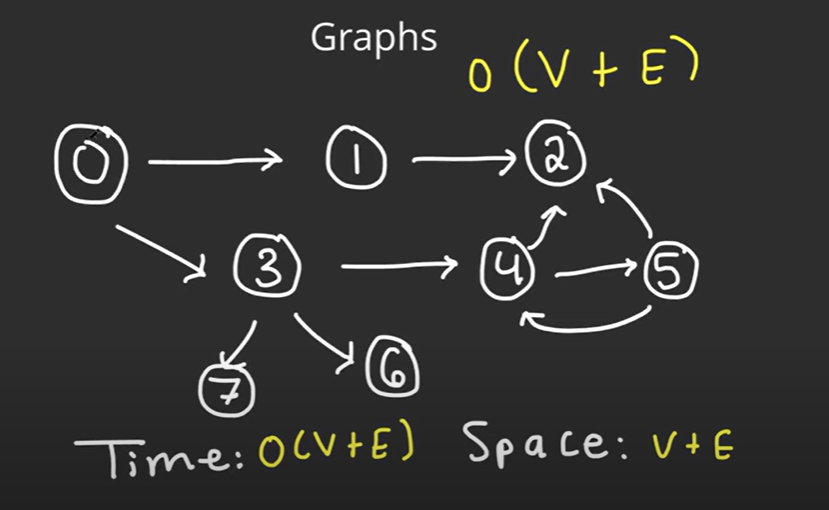 Graphs
O(V + E)
0 1 2
3 4 5
7 6
Time: O(V+E) Space: V+E